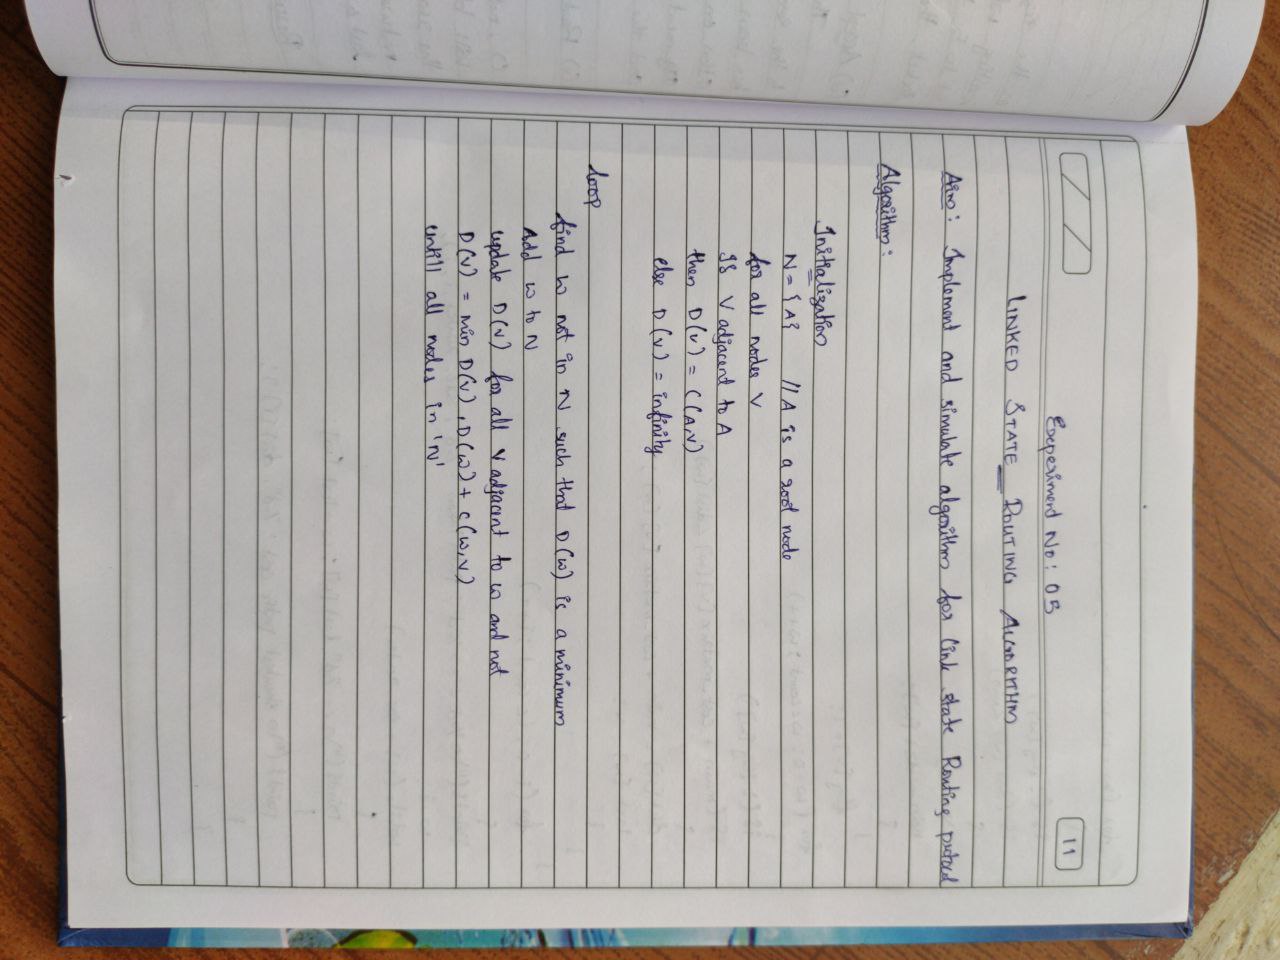 11
Experiment No: 05
LINKED STATE ROUTING ALGORITHM
Aim: Implement and simulate algorithm for link state Routing protocol
Algorithm:
Initialization
N = {A} // A is a root node
for all nodes V
If V adjacent to A
then D(v) = C(A,V)
else D(v) = infinity
Loop
find w not in N such that D(w) is a minimum
Add w to N
update D(v) for all v adjacent to w and not
D(v) = min D(v), D(w) + c(w,v)
untill all nodes in 'N'